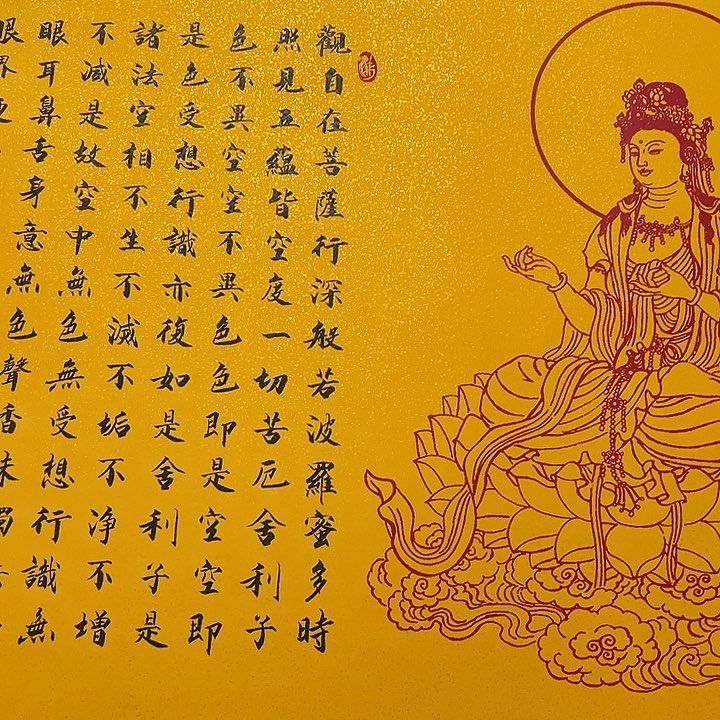 觀自在菩薩行深般若波羅蜜多時
照見五蘊皆空度一切苦厄舍利子
色不異空空不異色色即是空空即
是色受想行識亦復如是舍利子是
諸法空相不生不滅不垢不净不增
不减是故空中無色無受想行識無
眼耳鼻舌身意無色聲香味
眼界